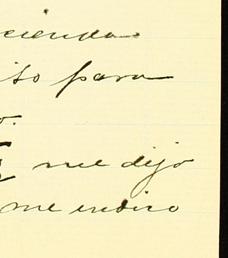 cienda
so para
o.
me dijo
me indico